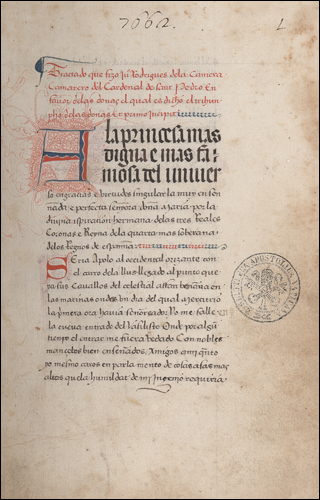 7062.
1
Tractado que fizo Juº Rodrigues dela Camera
Camarero del Cardenal de sant Pedro en
fauor delas donas el qual es dicho el triun
pho delas donas et primo incipit
A la princesa mas
digna e mas fa
mosa del uniuer
so en gracias e virtudes singular la muy en señ
nada e perfecta señora doña Maria por la
diuina inspiración hermana delas tres Reales
Coronas e Reina dela quarta mas soberana
delos Regnos de espanna
Sería Apolo al occidental orizonte con
el carro dela lus llegado al punto que
ya sus Cauallos del celestial afan beuian en
las marinas ondas un dia del qual el terçero
la primera ora hauia señoreado. Yo me falle
la cueua entrado del basilisco Onde por algũ
tiempo el entrar me fuera vedado Con nobles
mancebos bien enseñados. Amigos
no menos caros en parlamento de cosas asas mas
altas quela humildat de mi ingenio requiria